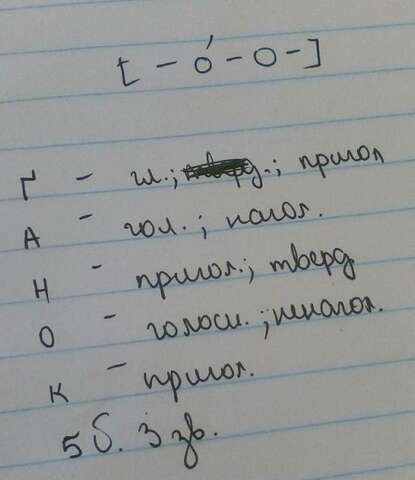 [ – о́ – о – ]
Ґ – гл.; пригол
А – гол.; нагол.
Н – пригол.; тверд
О – голосн.; ненагол.
К – пригол.
5 б. 3 зв.